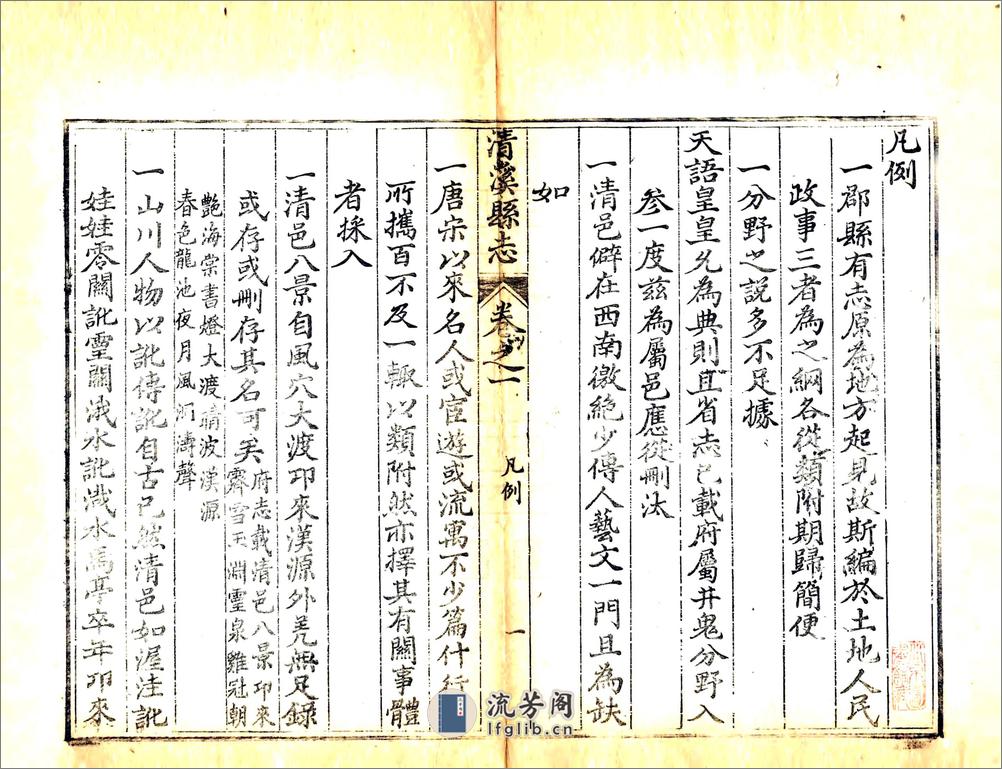 凡例
一郡縣有志原為地方起見故斯編於土地人民
政事三者為之綱各從類附期歸簡便
一分野之説多不足據
天語皇皇允為典則且省志已載府屬井鬼分野入
參一度兹為屬邑應從刪汰
一清邑僻在西南徼絶少傳人藝文一門且為缺
如
清溪縣志 卷之一 凡例 一
一唐宋以來名人或宦遊或流寓不少篇什行
所攜百不及一輒以類附然亦擇其有關事體
者採入
一清邑八景自風穴大渡卬來漢源外羌無足錄
或存或刪存其名可矣 府志載清邑八景卬來
霽雪玉淵靈泉雞冠朝
艷海棠書燈大渡晴波漢源
春色龍池夜月風洞濤聲
一山川人物以訛傳訛自古已然清邑如渥洼訛
娃娃零關訛靈關涐水訛濺水馬亭卒年卬來
流芳阁
lfglib.cn